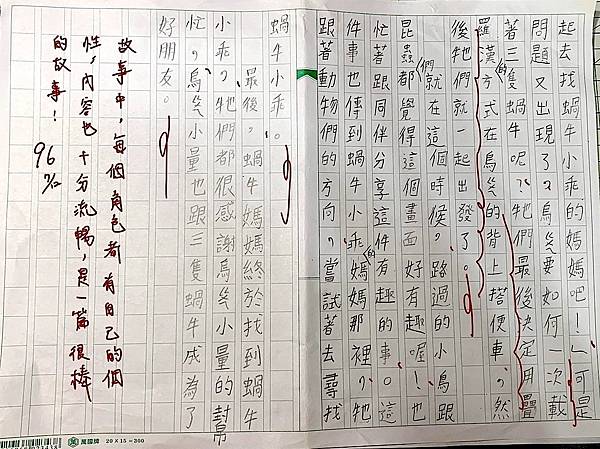 起去找蝸牛小乖的媽媽吧!」可是
問題又出現了,烏龜要如何一次載
著三隻蝸牛呢?牠們最後決定用疊
羅漢的方式在烏龜的背上搭便車,然
後牠們就一起出發了。
就在這個時候,路過的小鳥跟
昆蟲們都覺得這個畫面好有趣喔!也
忙著跟同伴分享這件有趣的事。這
件事也傳到蝸牛小乖的媽媽那裡,牠
跟著動物們的方向,嘗試著去尋找
蝸牛小乖。
最後,蝸牛媽媽終於找到蝸牛
小乖,牠們都很感謝烏龜小量的幫
忙,烏龜小量也跟三隻蝸牛成為了
好朋友。
故事中,每個角色都有自己的個
性,內容也十分流暢,是一篇很棒
的故事!
96
7/12
萬國牌 20 X 15 = 300